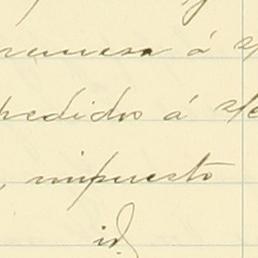 remesa á s/
pedido á s/c
, impuesto
id